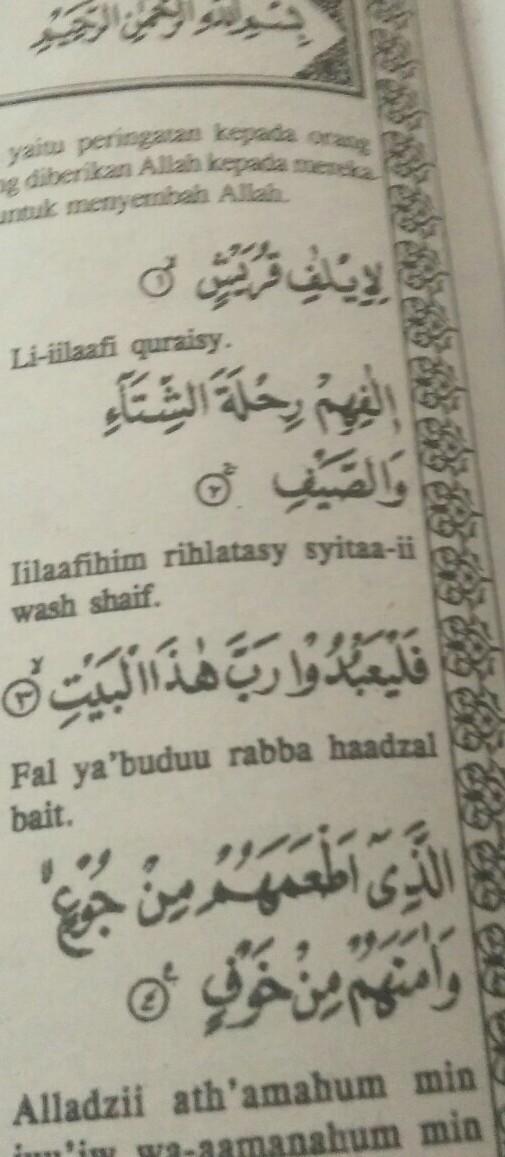 بِسْمِ اللهِ الرَّحْمٰنِ الرَّحِيْمِ
yaitu peringatan kepada orang
ng diberikan Allah kepada mereka
untuk menyembah Allah.
لِاِيْلٰفِ قُرَيْشٍۙ ١
Li-iilaafi quraisy.
اٖلٰفِهِمْ رِحْلَةَ الشِّتَآءِ
وَالصَّيْفِۚ ٢
Iilaafihim rihlatasy syitaa-ii
wash shaif.
فَلْيَعْبُدُوْا رَبَّ هٰذَا الْبَيْتِۙ ٣
Fal ya'buduu rabba haadzal
bait.
الَّذِيْٓ اَطْعَمَهُمْ مِنْ جُوْعٍۙ
وَاٰمَنَهُمْ مِنْ خَوْفٍۚ ٤
Alladzii ath'amahum min
juu'iw wa-aamanahum min